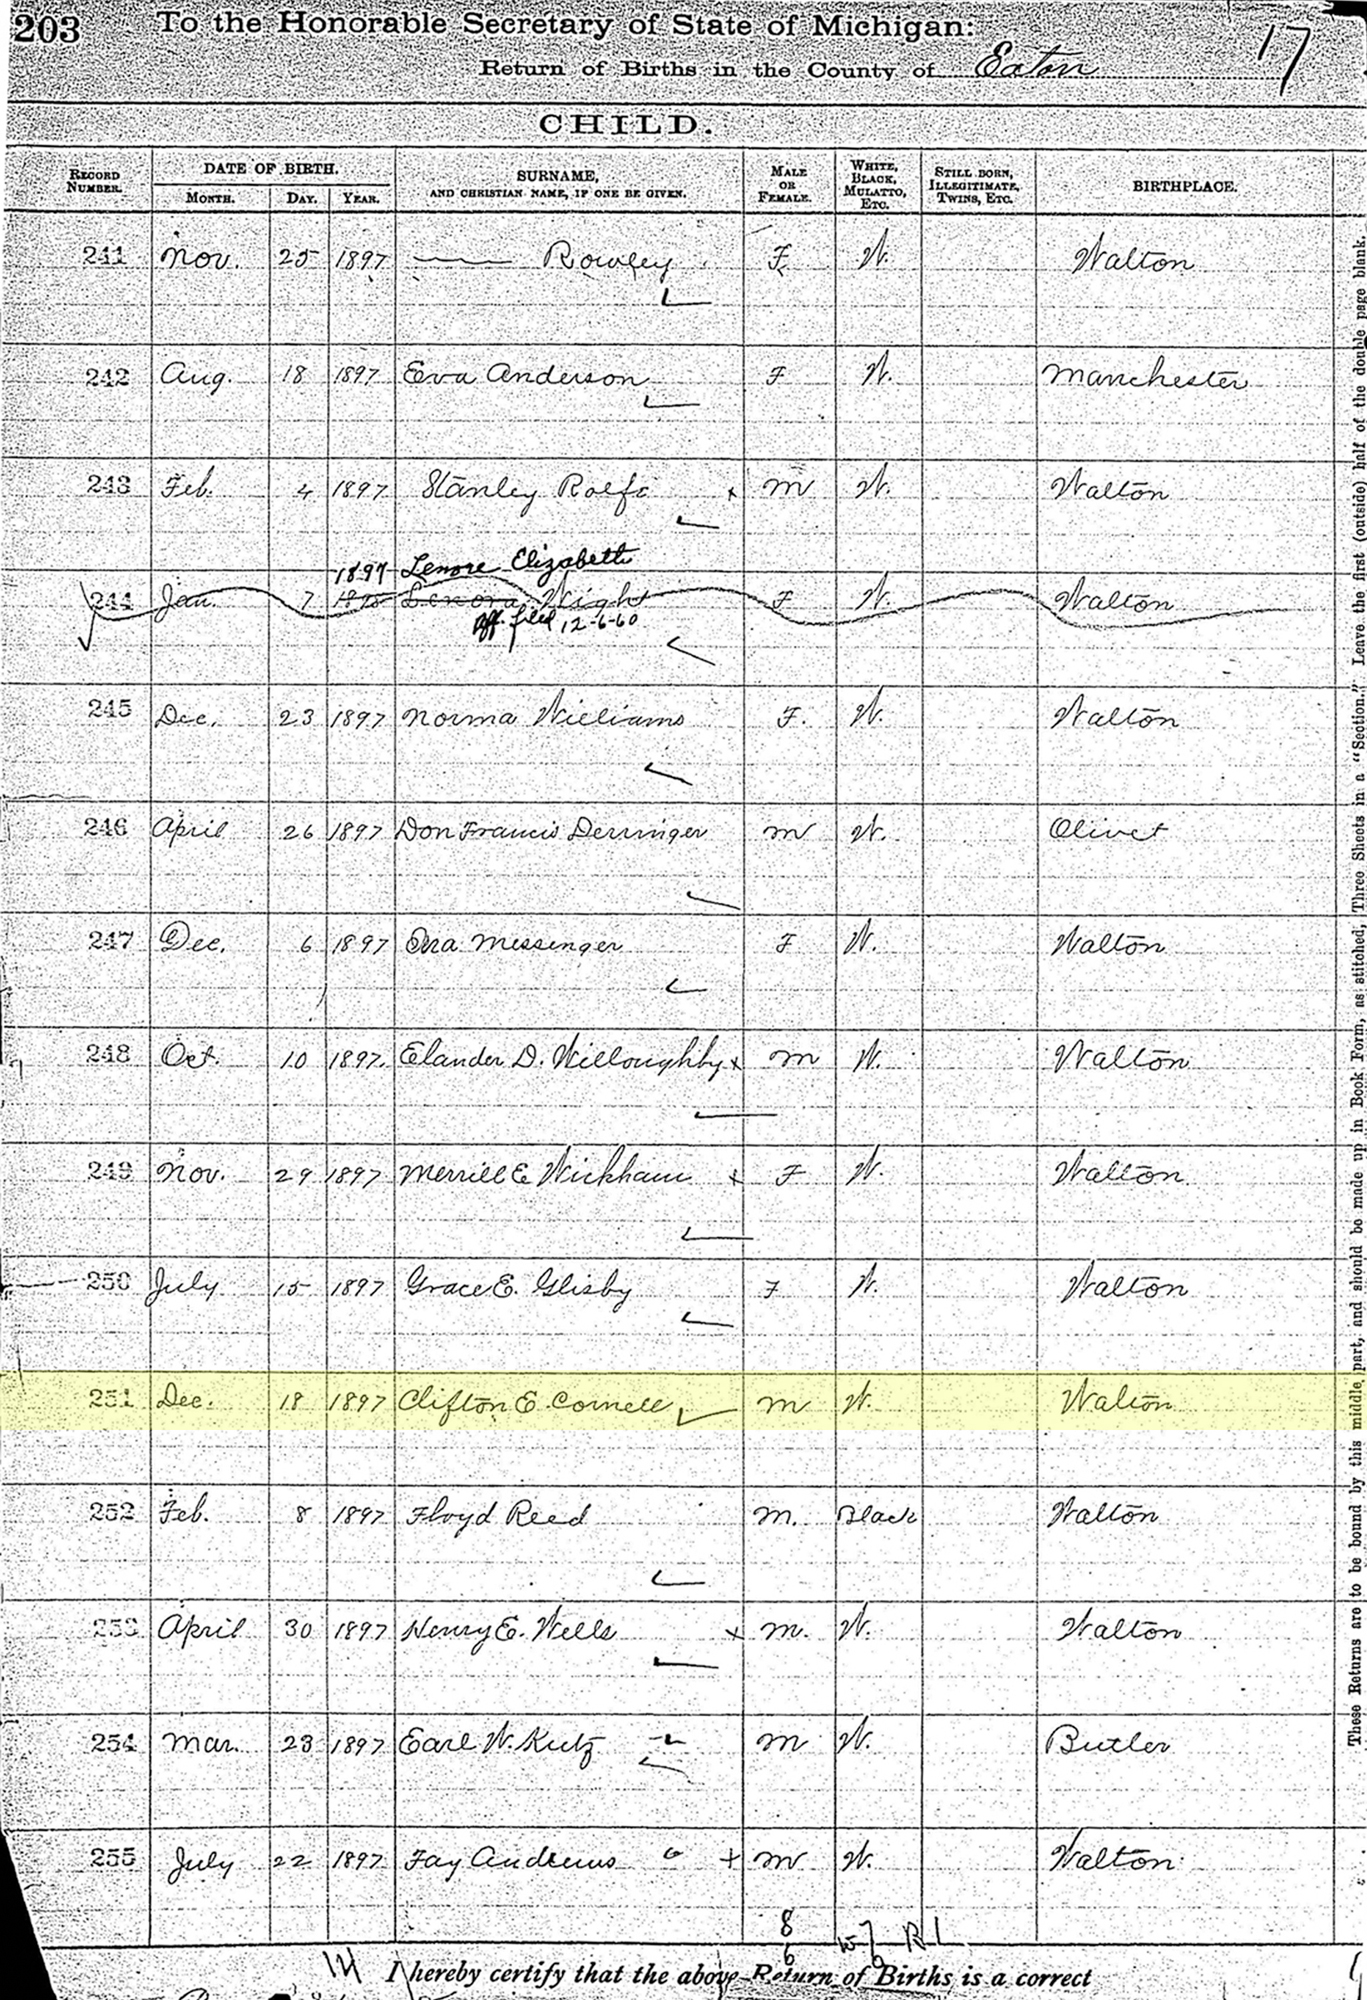 203 To the Honorable Secretary of State of Michigan: 17
Return of Births in the County of Eaton
CHILD.
RECORD NUMBER. DATE OF BIRTH. MONTH. DAY. YEAR. SURNAME, AND CHRISTIAN NAME, IF ONE BE GIVEN. MALE OR FEMALE. WHITE, BLACK, MULATTO, ETC. STILL BORN, ILLEGITIMATE, TWINS, ETC. BIRTHPLACE.
241 Nov. 25 1897 —— Rowley F W. Walton
242 Aug. 18 1897 Eva Anderson F W. Manchester
243 Feb. 4 1897 Stanley Rolfe x M W. Walton
1897 Lenore Elizabeth
244 Jan. 7 1895 Lenora Wight F W. Walton
Aff. filed 12-6-60
245 Dec. 23 1897 Norma Williams F. W. Walton
246 April 26 1897 Don Francis Derringer M W. Olivet
247 Dec. 6 1897 Ora Messenger F W. Walton
248 Oct. 10 1897. Elander D. Willoughby x M W. Walton
249 Nov. 29 1897 Merrill E Wickham x F W. Walton
250 July 15 1897 Grace E. Glisby F W. Walton
251 Dec. 18 1897 Clifton E. Cornell M W. Walton
252 Feb. 8 1897 Floyd Reed M. Black Walton
253 April 30 1897 Henry E. Wells x M. W. Walton
254 Mar. 23 1897 Earl W. Kutz M W. Butler
255 July 22 1897 Fay Andrews x M W. Walton
8
6
14 I hereby certify that the above Return of Births is a correct
These Returns are to be bound by this middle part, and should be made up in Book Form, as stitched, Three Sheets in a "Section." Leave the first (outside) half of the double page blank.